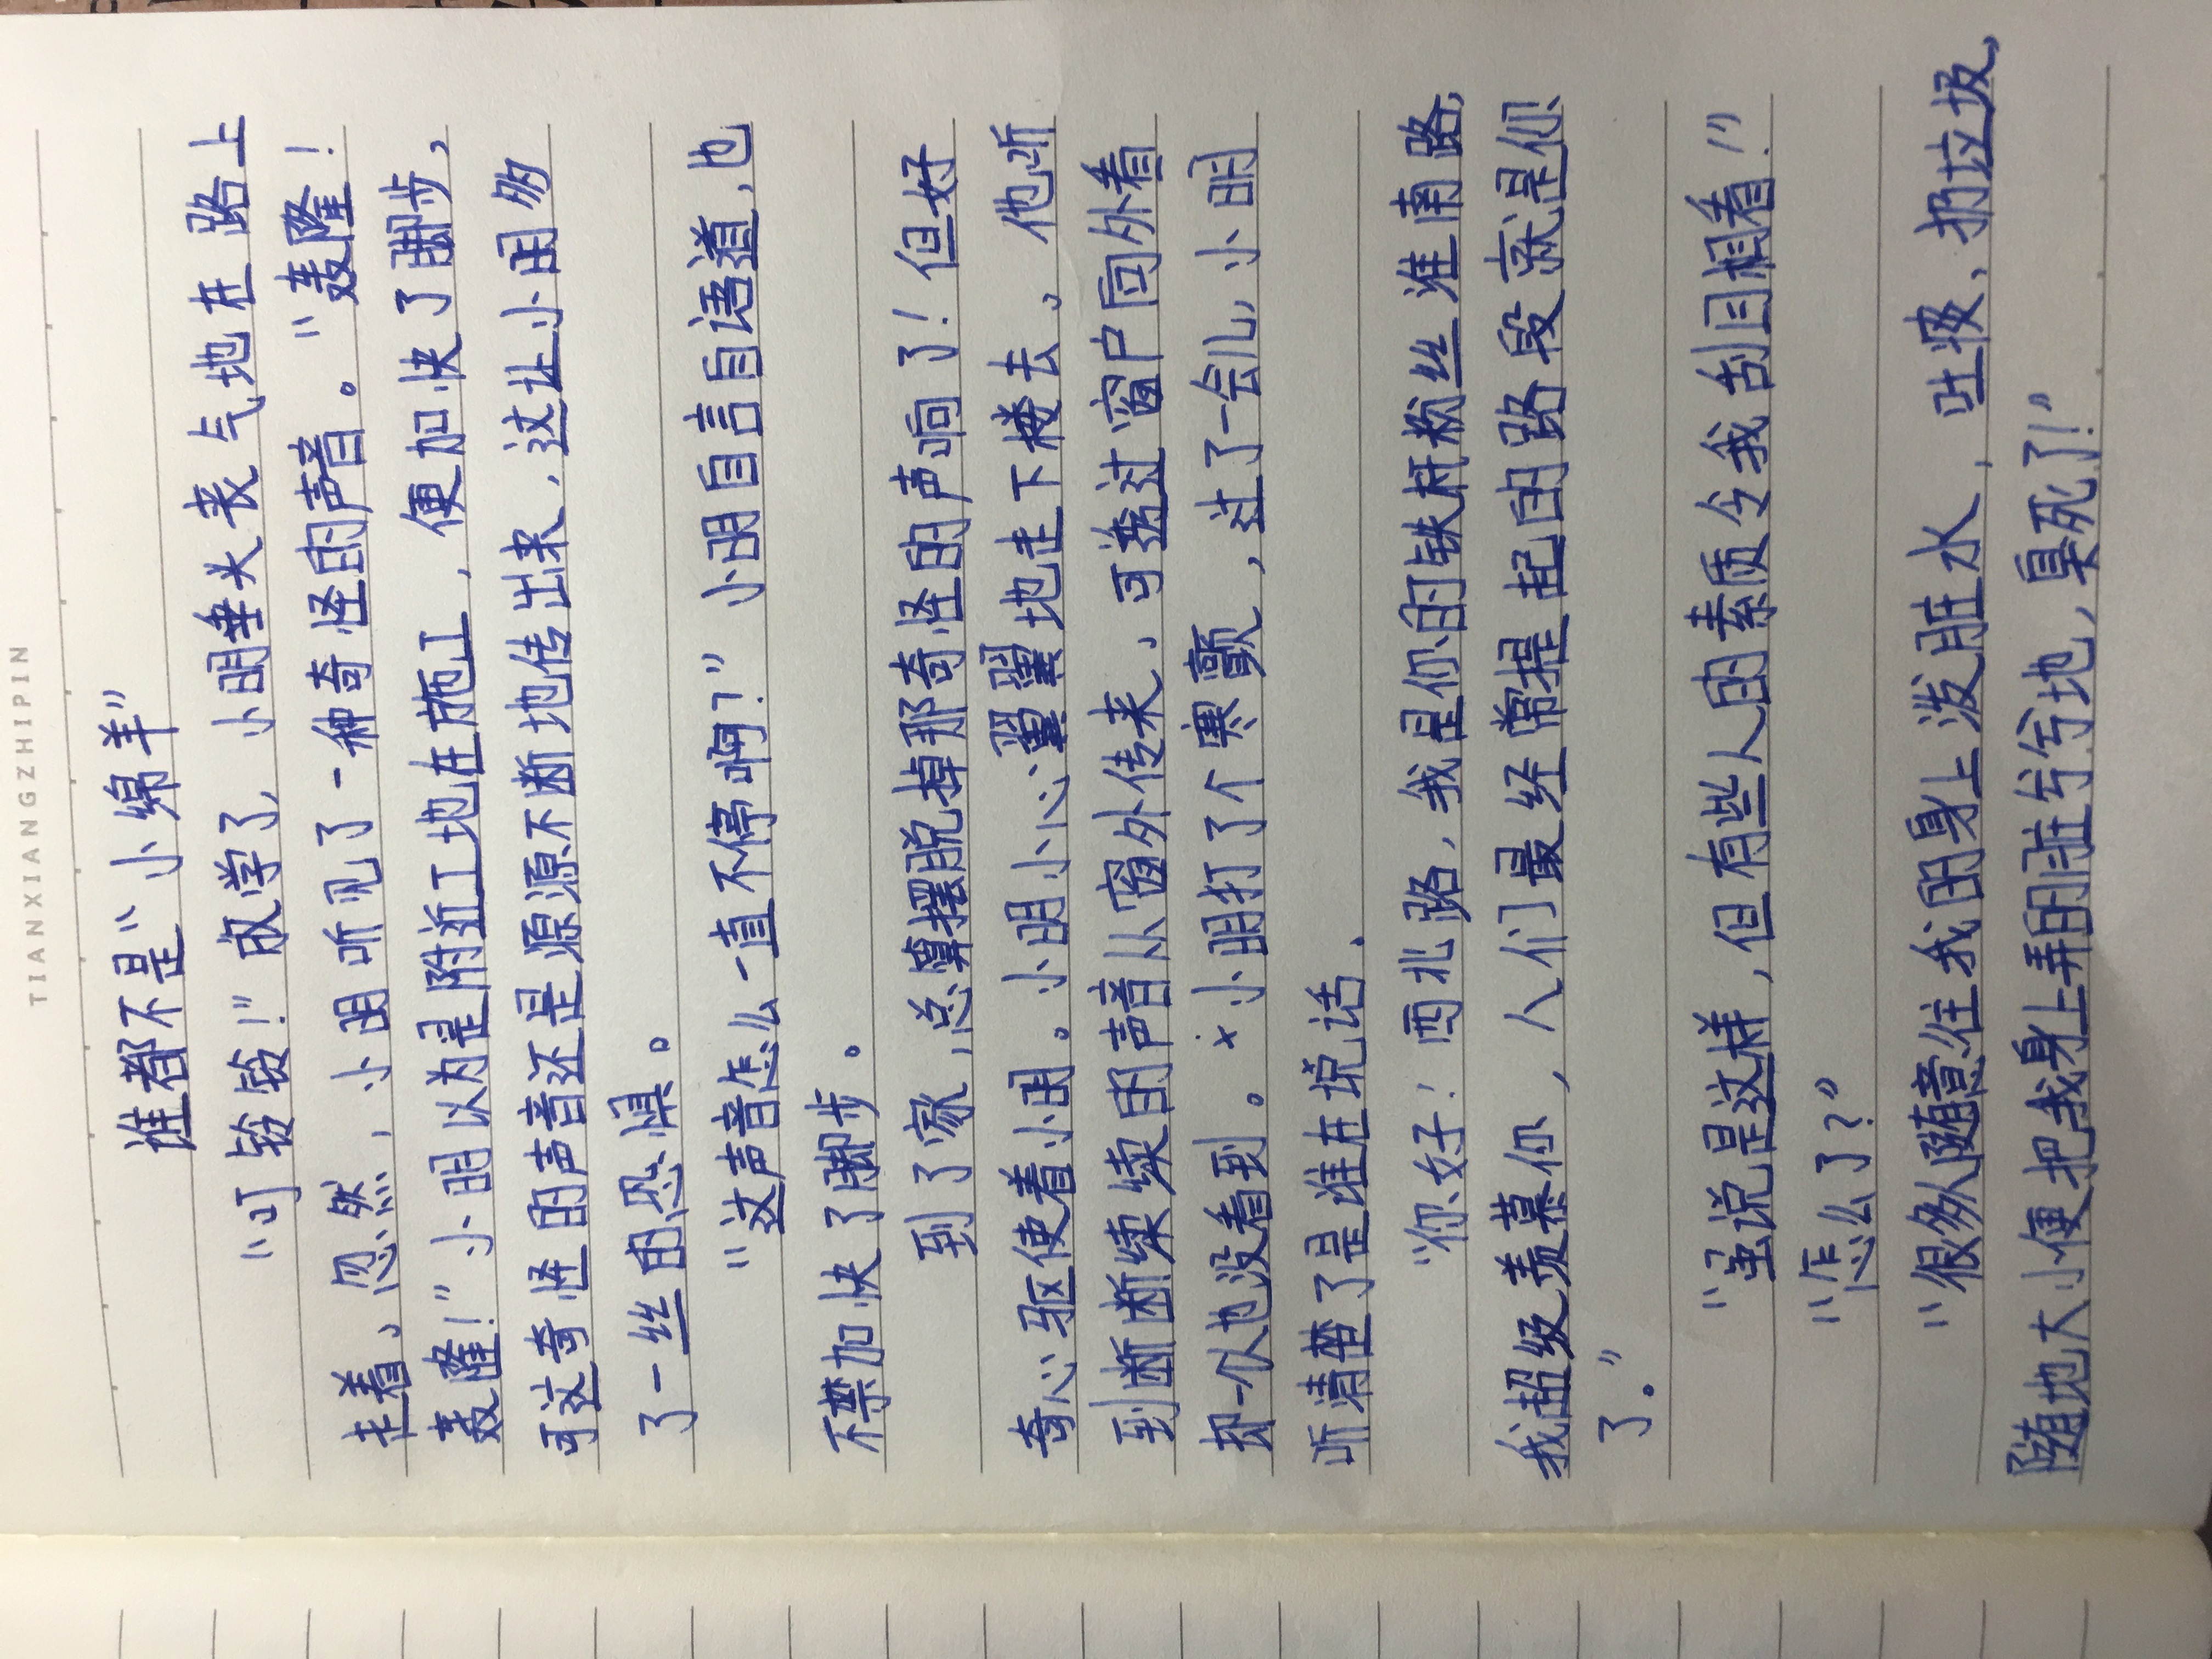 TIANXIANGZHIPIN
谁都不是“小绵羊”
“叮铃铃!”放学了,小明垂头丧气地在路上
走着。忽然,小明听见了一种奇怪的声音。“轰隆!
轰隆!”小明以为是附近工地在施工,便加快了脚步,
可这奇怪的声音还是源源不断地传出来,这让小明多
了一丝的恐惧。
“这声音怎么一直不停啊?”小明自言自语道,也
不禁加快了脚步。
到了家,总算摆脱掉那奇怪的声响了!但好
奇心驱使着小明。小明小心翼翼地走下楼去。他听
到断断续续的声音从窗外传来,可透过窗户向外看
却一个人也没看到。小明打了个寒颤,过了一会儿,小明
听清楚了是谁在说话.
“你好!西北路,我是你的铁杆粉丝淮南路,
我超级羡慕你,人们最经常提起的路段就是你
了。”
“虽说是这样,但有些人的素质令我刮目相看!”
“怎么了?”
“很多人随意往我的身上泼脏水,吐痰、扔垃圾,
随地大小便把我身上弄的脏兮兮地,臭死了!”